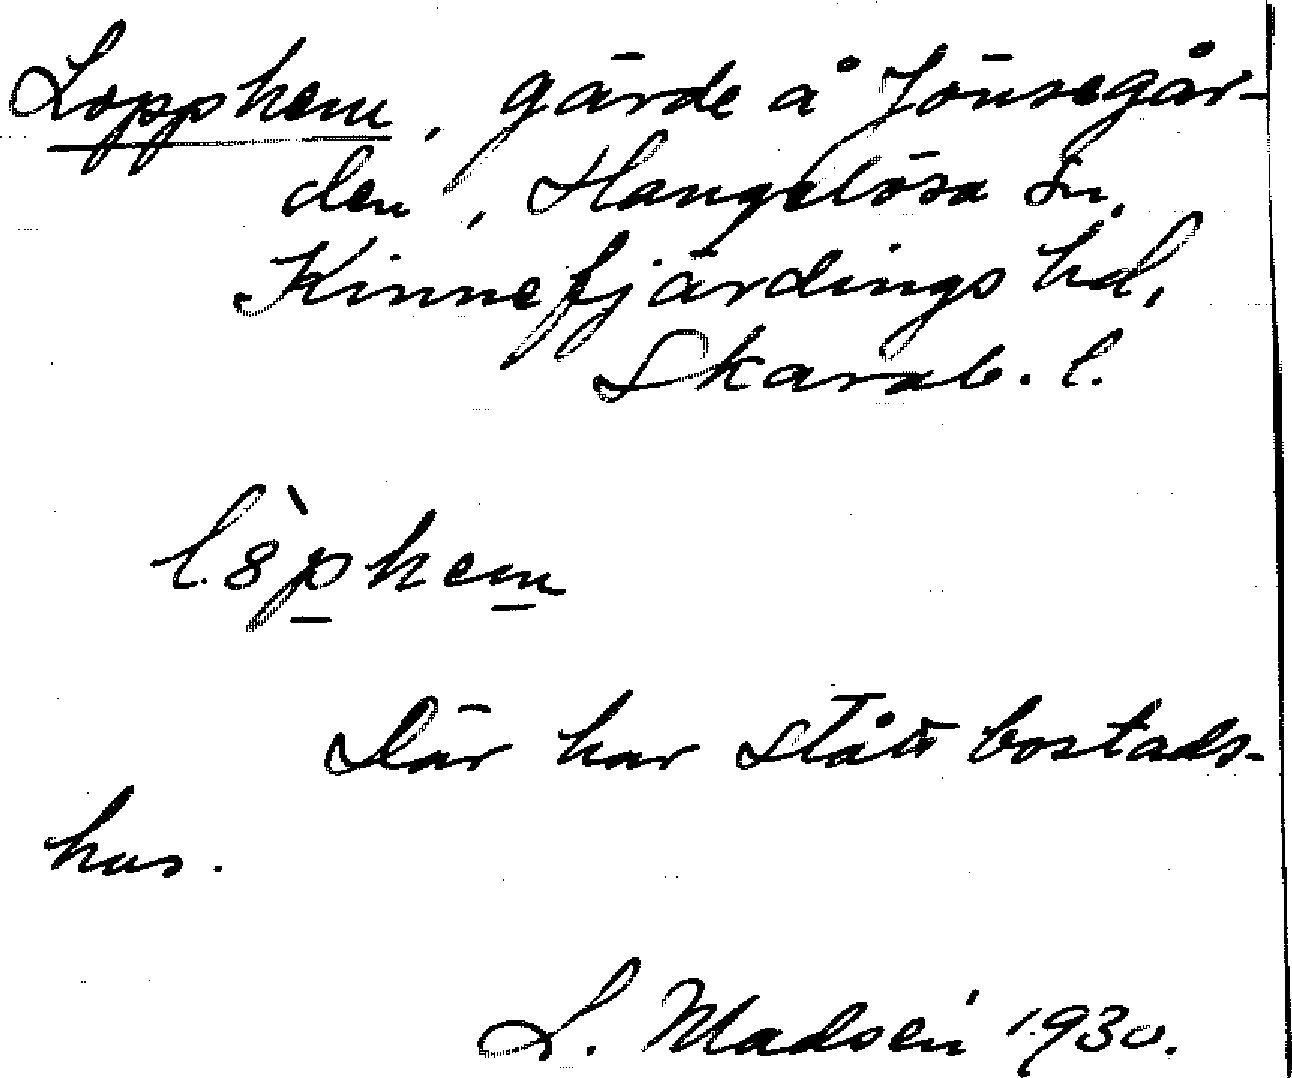 Lopphem, gärde å Jönsegår-
den, Hangelösa sn,
Kinnefjärdings hd,
Skarab. l.
l8̀phem
Där har stått bostads-
hus.
L. Madsén 1930.